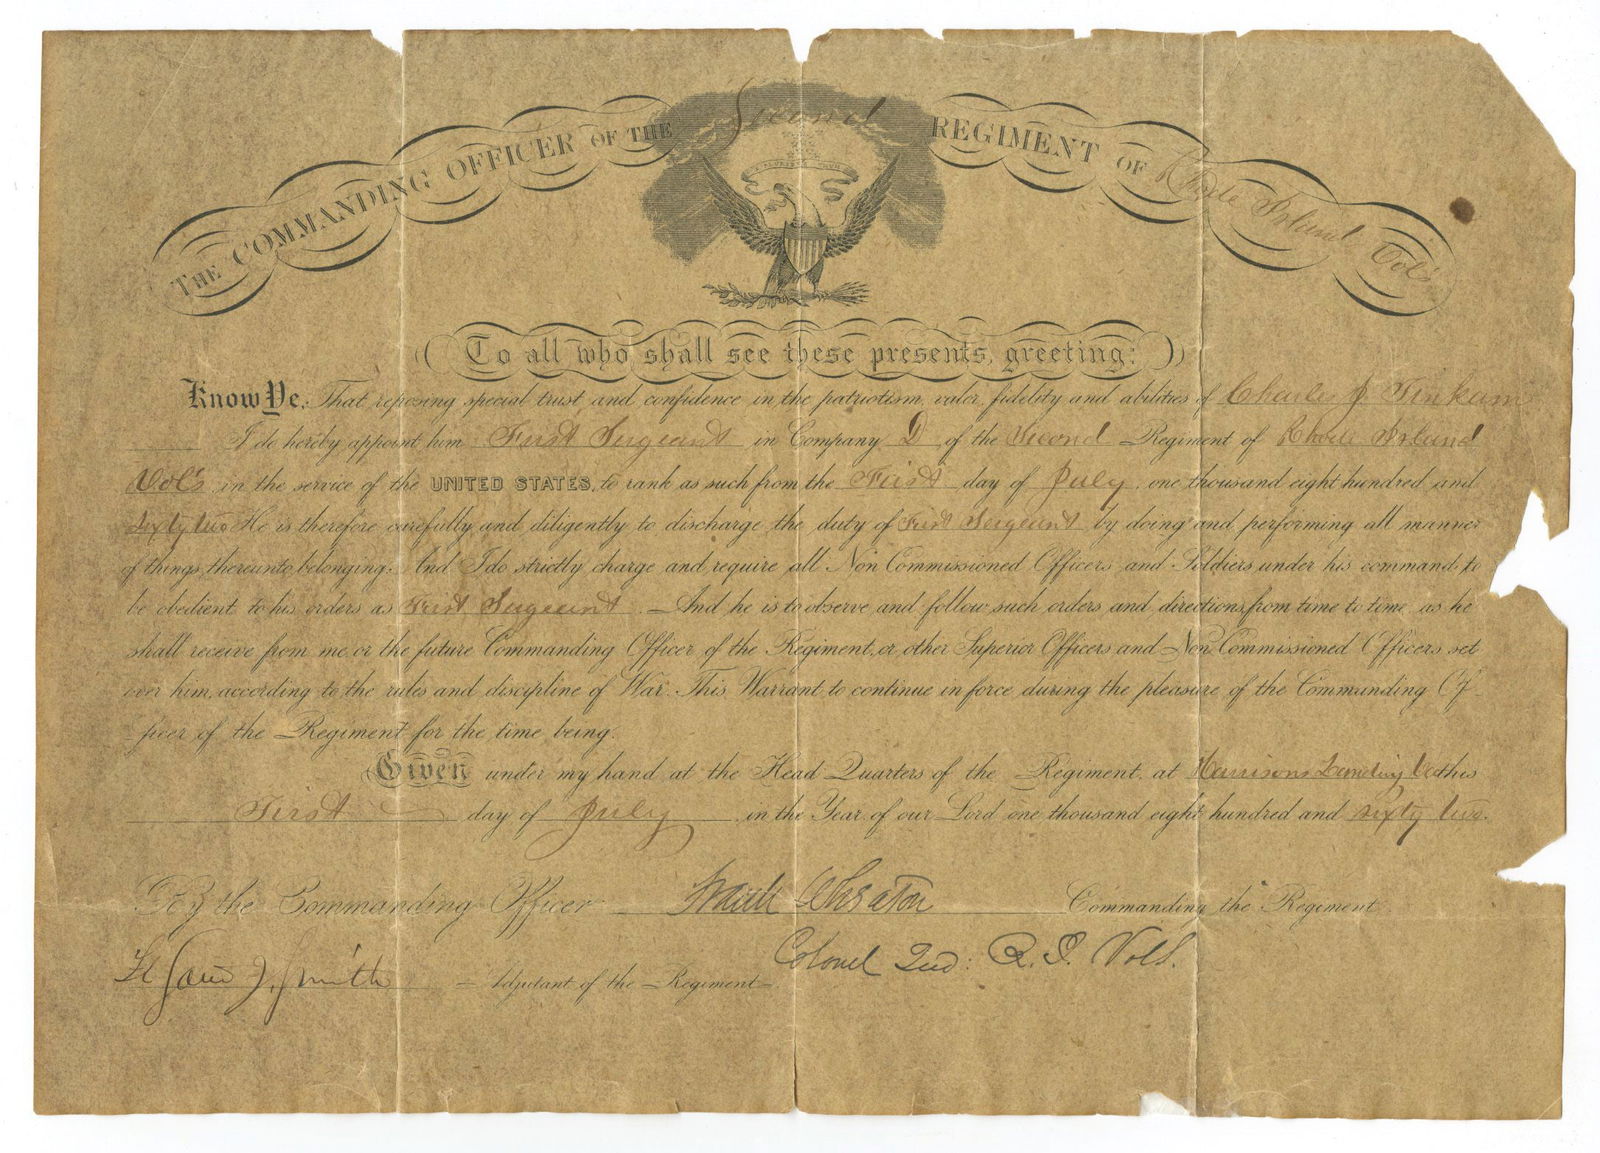 THE COMMANDING OFFICER OF THE Second REGIMENT OF Rhode Island Vols
E PLURIBUS UNUM
To all who shall see these presents, greeting:
Know Ye, That reposing special trust and confidence in the patriotism, valor, fidelity and abilities of Charles J. Tinkam
I do hereby appoint him First Sergeant in Company D of the Second Regiment of Rhode Island
Vols in the service of the UNITED STATES, to rank as such from the First day of July one thousand eight hundred and
sixty two He is therefore carefully and diligently to discharge the duty of First Sergeant by doing and performing all manner
of things thereunto belonging. And I do strictly charge and require all Non Commissioned Officers and Soldiers under his command to
be obedient to his orders as First Sergeant. And he is to observe and follow such orders and directions from time to time, as he
shall receive from me, or the future Commanding Officer of the Regiment, or other Superior Officers and Non Commissioned Officers set
over him, according to the rules and discipline of War. This Warrant to continue in force during the pleasure of the Commanding Of-
ficer of the Regiment for the time being.
Given under my hand at the Head Quarters of the Regiment, at Harrisons Landing Va this
First day of July in the Year of our Lord one thousand eight hundred and sixty two.
By the Commanding Officer Frank Wheaton Commanding the Regiment
Colonel 2nd: R. I. Vols.
Smith Adjutant of the Regiment.